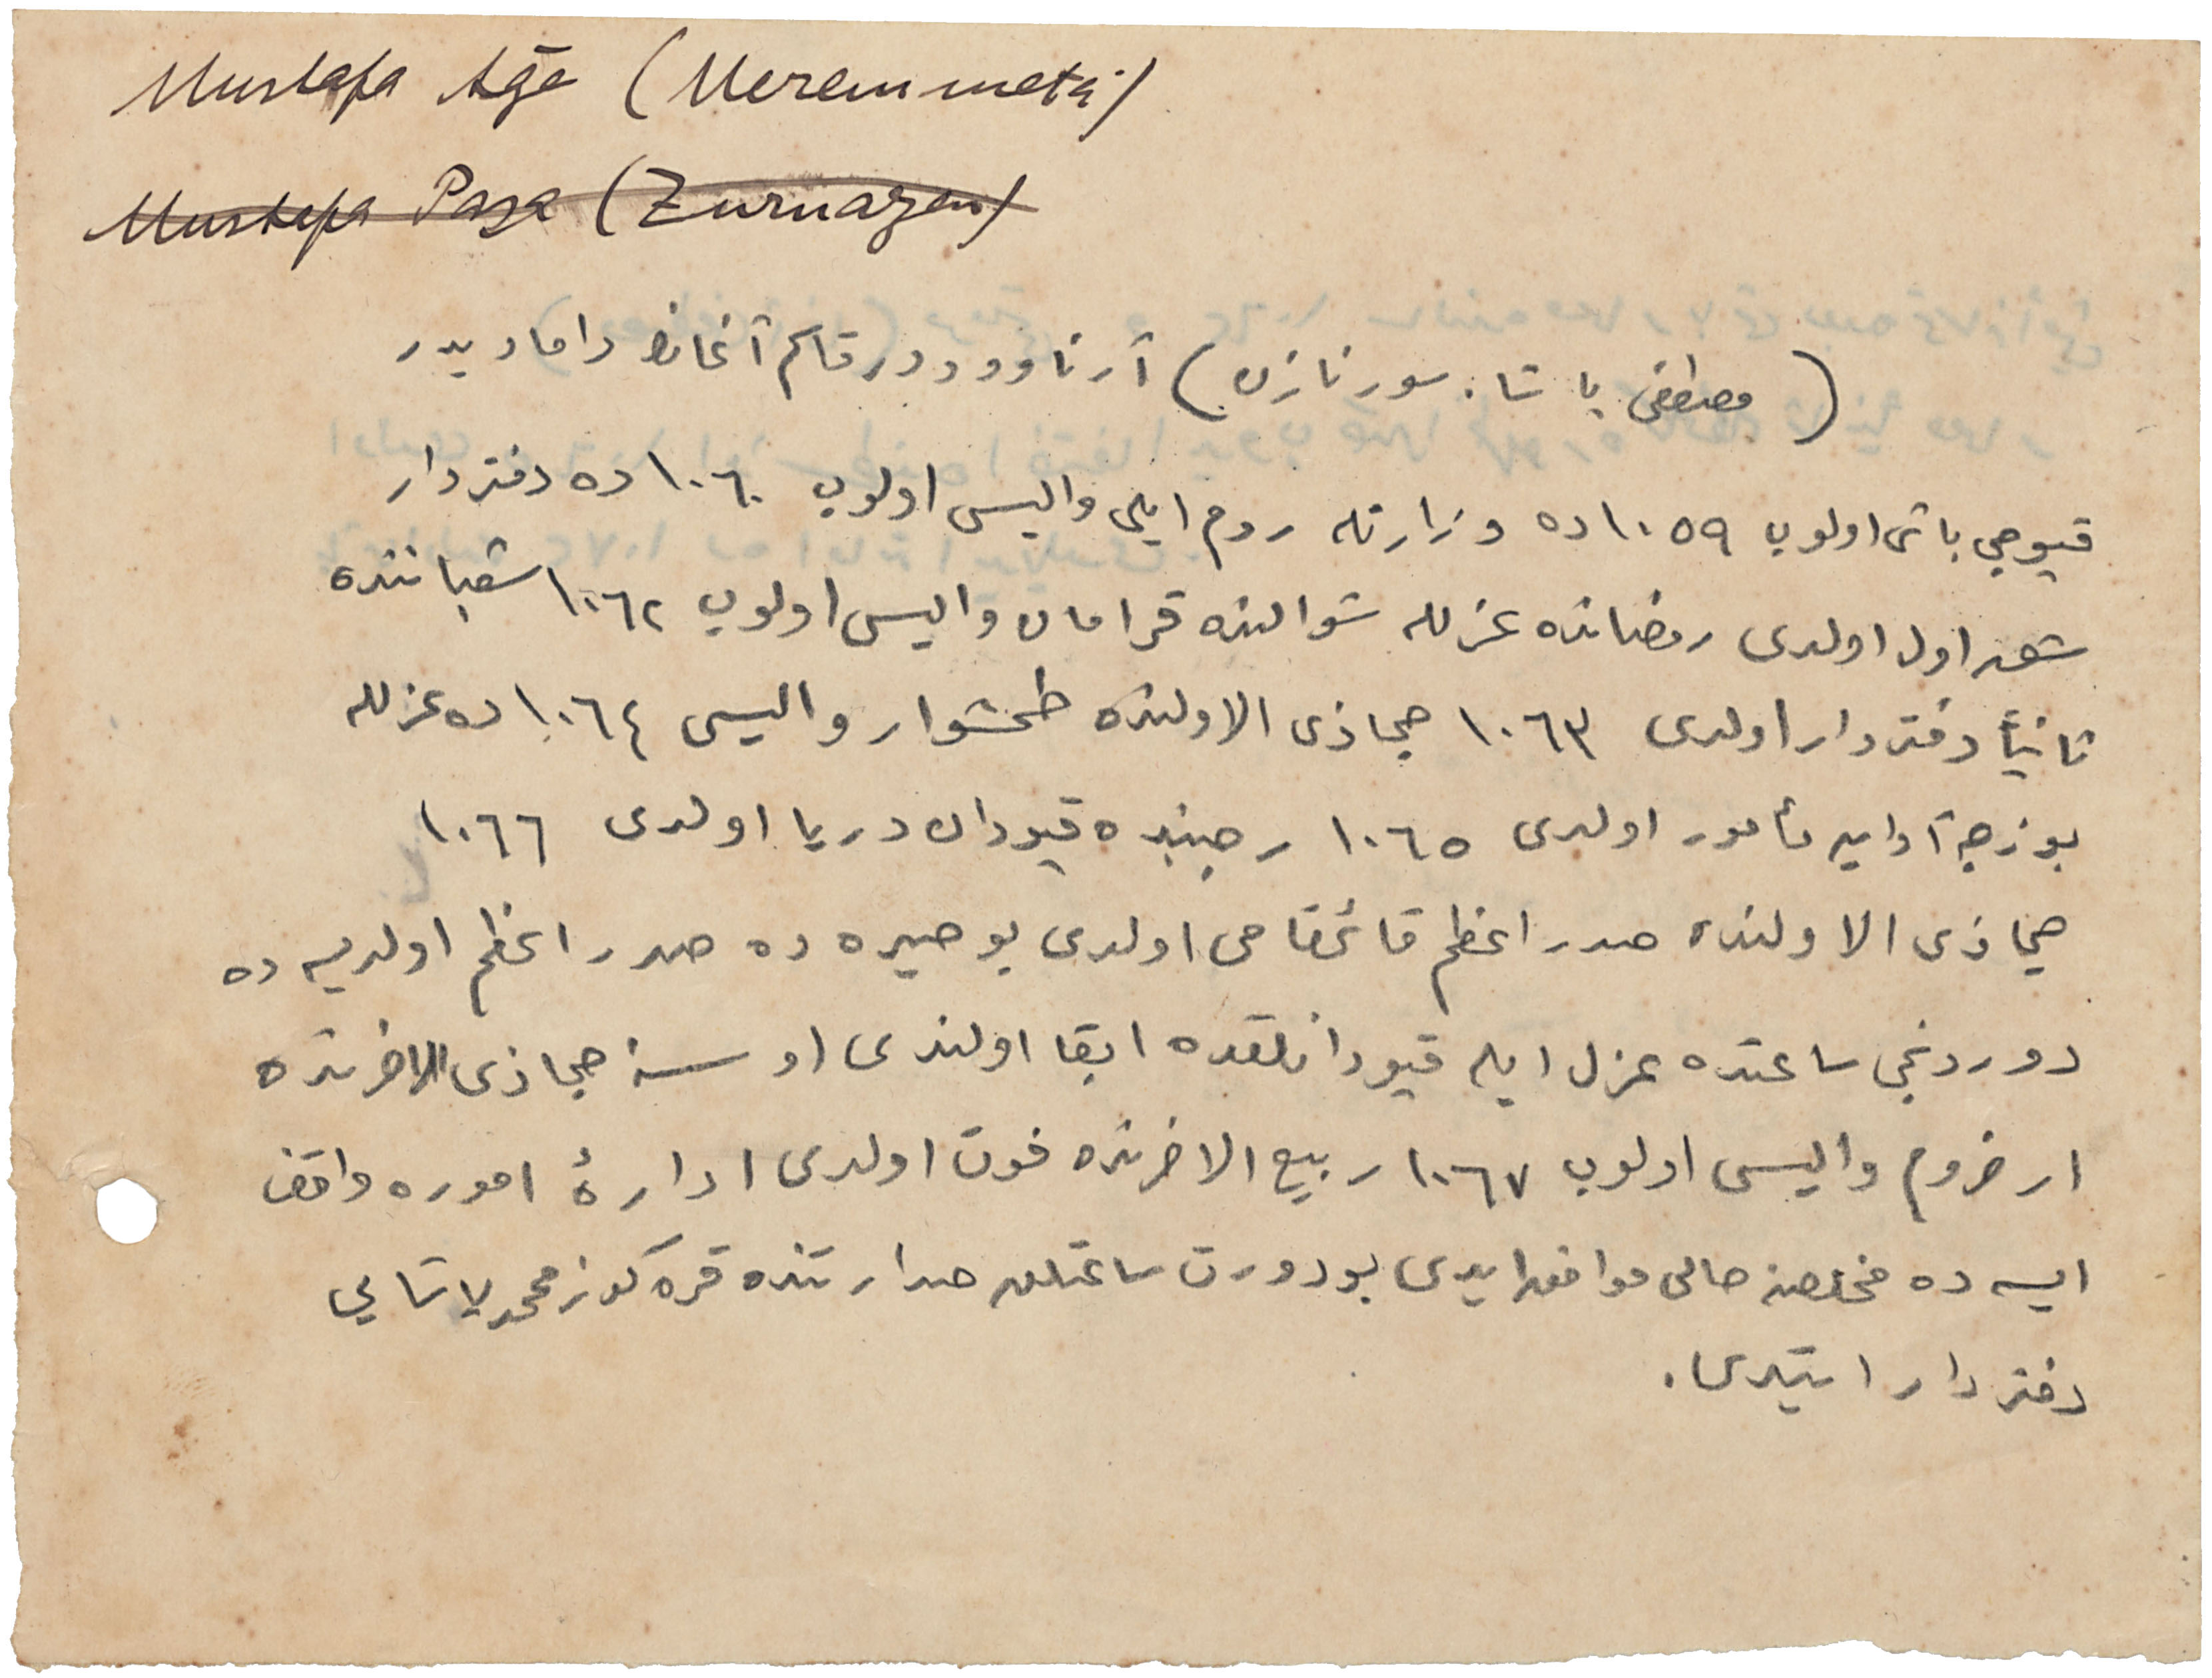 Mustafa Ağa (Meremmetçi)
Mustafa Paşa (Zurnazen)
(مصطفى پاشا. سورنازن) آرناوود در قاسم آغانڭ داماديدر
قپوجى باشى اولوب ١٠٥٩ ده وزارتله روم ايلى واليسى اولوب ١٠٦٠ ده دفتردار
شق اول اولدى رمضانده عزلله شوالنده قرامان واليسى اولوب ١٠٦٢ شعباننده
ثانياً دفتردار اولدى ١٠٦٣ جماذى الاولنده طمشوار واليسى ١٠٦٤ ده عزلله
بوزجه آدايه مأمور اولدى ١٠٦٥ رجبنده قپودان دريا اولدى ١٠٦٦
جماذى الاولنده صدر اعظم قائمقامى اولدى بو صيره ده صدر اعظم اولديسه ده
دوردنجى ساعتده عزل ايله قپودانلقده ابقا اولندى او سنه جماذى الاخرنده
ارضروم واليسى اولوب ١٠٦٧ ربيع الاخرنده فوت اولدى ادارهٔ اموره واقف
ايسه ده حالى موافق ايدى بو دورت ساعتلق صدارتنده قره كوز محمد پاشايى
دفتردار ايتدى.